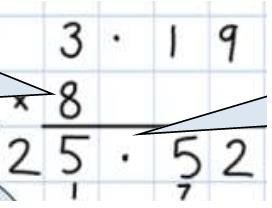 3 · 1 9
× 8
2 5 · 5 2
1 7